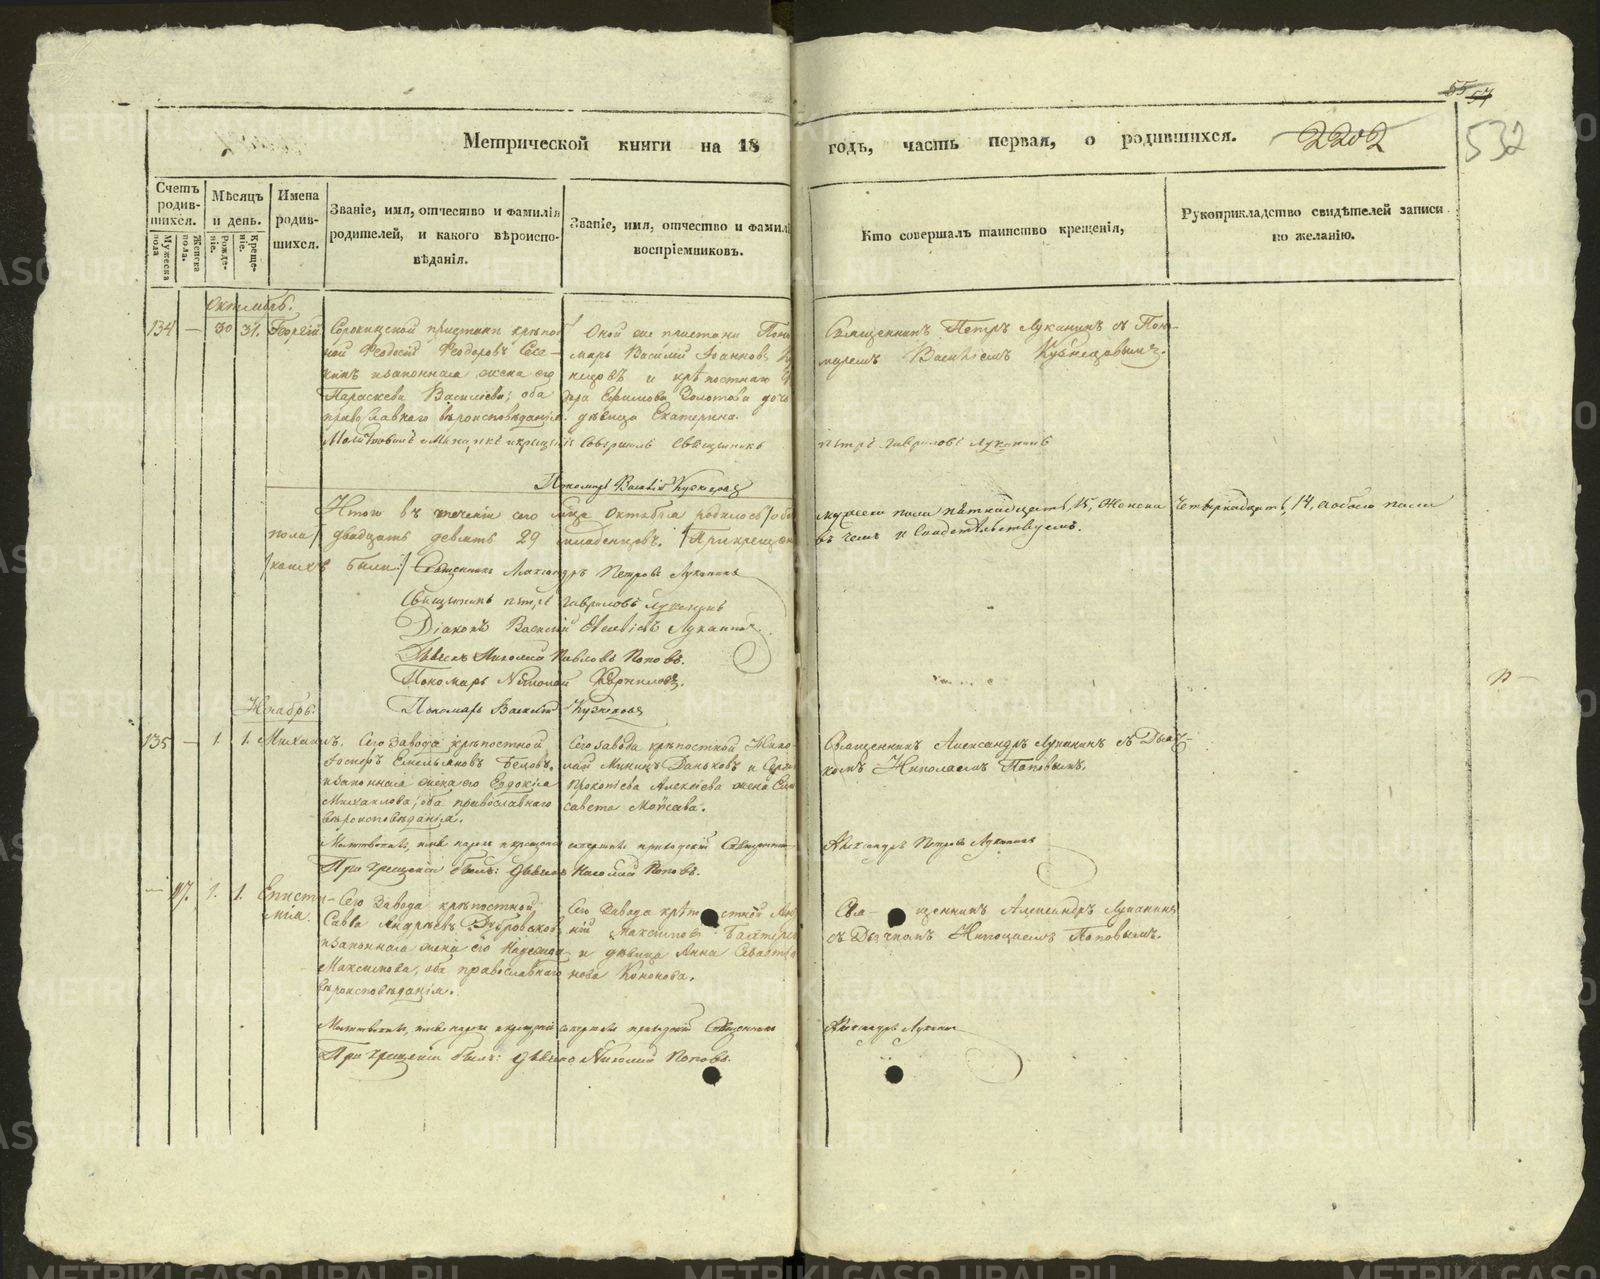 55 57
532
Метрической книги на 18 годъ, часть первая, о родившихся. 2202
Счетъ родив-шихся.
Мужеска пола.
Женска пола.
Мѣсяцъ и день.
Рожде-ніе.
Креще-ніе.
Имена родив-шихся.
Званіе, имя, отчество и фамилія родителей, и какого вѣроиспо-вѣданія.
Званіе, имя, отчество и фамилі воспріемниковъ.
Кто совершалъ таинство крещенія,
Рукоприкладство свидѣтелей записи по желанію.
Октябрь.
134 — 30 31. Георгій
Сорокинской пристани крѣпос
ной Феодосій Феодоровъ
кинъ и законная жена его
Параскева Васильева; оба
православнаго вѣроисповѣданія.
Оной же пристани Поно
марь Василій Іоанновъ
нецовъ и крѣпостнаго
Ефимова Золотова доч
дѣвица Екатерина.
Священникъ Петръ Луканинъ съ Поно-
маремъ Василіемъ Кузнецовымъ.
Молитвовалъ имя нарекъ и крещеніе совершилъ Священникъ
Петръ Гавриловъ Луканинъ
Пономарь Василій Кузнецовъ
Итого въ теченіи сего мѣсяца Октября родилось обо
мужеска пола пятнадцать, 15, женска четырнадцать, 14, а обоего пола
пола двадцать девять 29 младенцовъ. При крещен
въ чемъ и свидѣтельствуемъ.
были: Священникъ Александръ Петровъ Луканинъ
Священникъ Петръ Гавриловъ Луканинъ
Діаконъ Василій Луканинъ.
Дьячекъ Николай Павловъ Поповъ.
Пономарь Николай
Пономарь Василій Кузнецовъ
Ноябрь.
135 — 1. 1. Михаилъ.
Сего завода крѣпостной
Іосифъ Емельяновъ Бѣловъ,
и законная жена его Евдокія
Михайлова; оба православнаго
вѣроисповѣданія.
Сего завода крѣпостной Нико
лай Мининъ Даньковъ и
Прокопіева Алексѣева жена Ели
савета Моисеева.
Священникъ Александръ Луканинъ съ Дьяч-
комъ Николаемъ Поповымъ.
Молитвовалъ, имя нарекъ и крещеніе совершилъ приходскій Священникъ
Александръ Петровъ Луканинъ
При крещеніи былъ: дьячекъ Николай Поповъ.
— 117. 1. 1. Еписти-
мія.
Сего завода крѣпостной
Савва Андреевъ Дубровской
и законная жена его Надежда
Максимова, оба православнаго
вѣроисповѣданія.
Сего завода крѣпостной Ан
ній Максимовъ
и дѣвица Анна Севастья
нова Кононова.
Свя- щенникъ Александръ Луканинъ
съ Дьячкомъ Николаемъ Поповымъ.
Молитвовалъ, имя нарекъ и крещеніе совершилъ приходскій Священникъ
Александръ Луканинъ
При крещеніи былъ: дьячекъ Николай Поповъ.